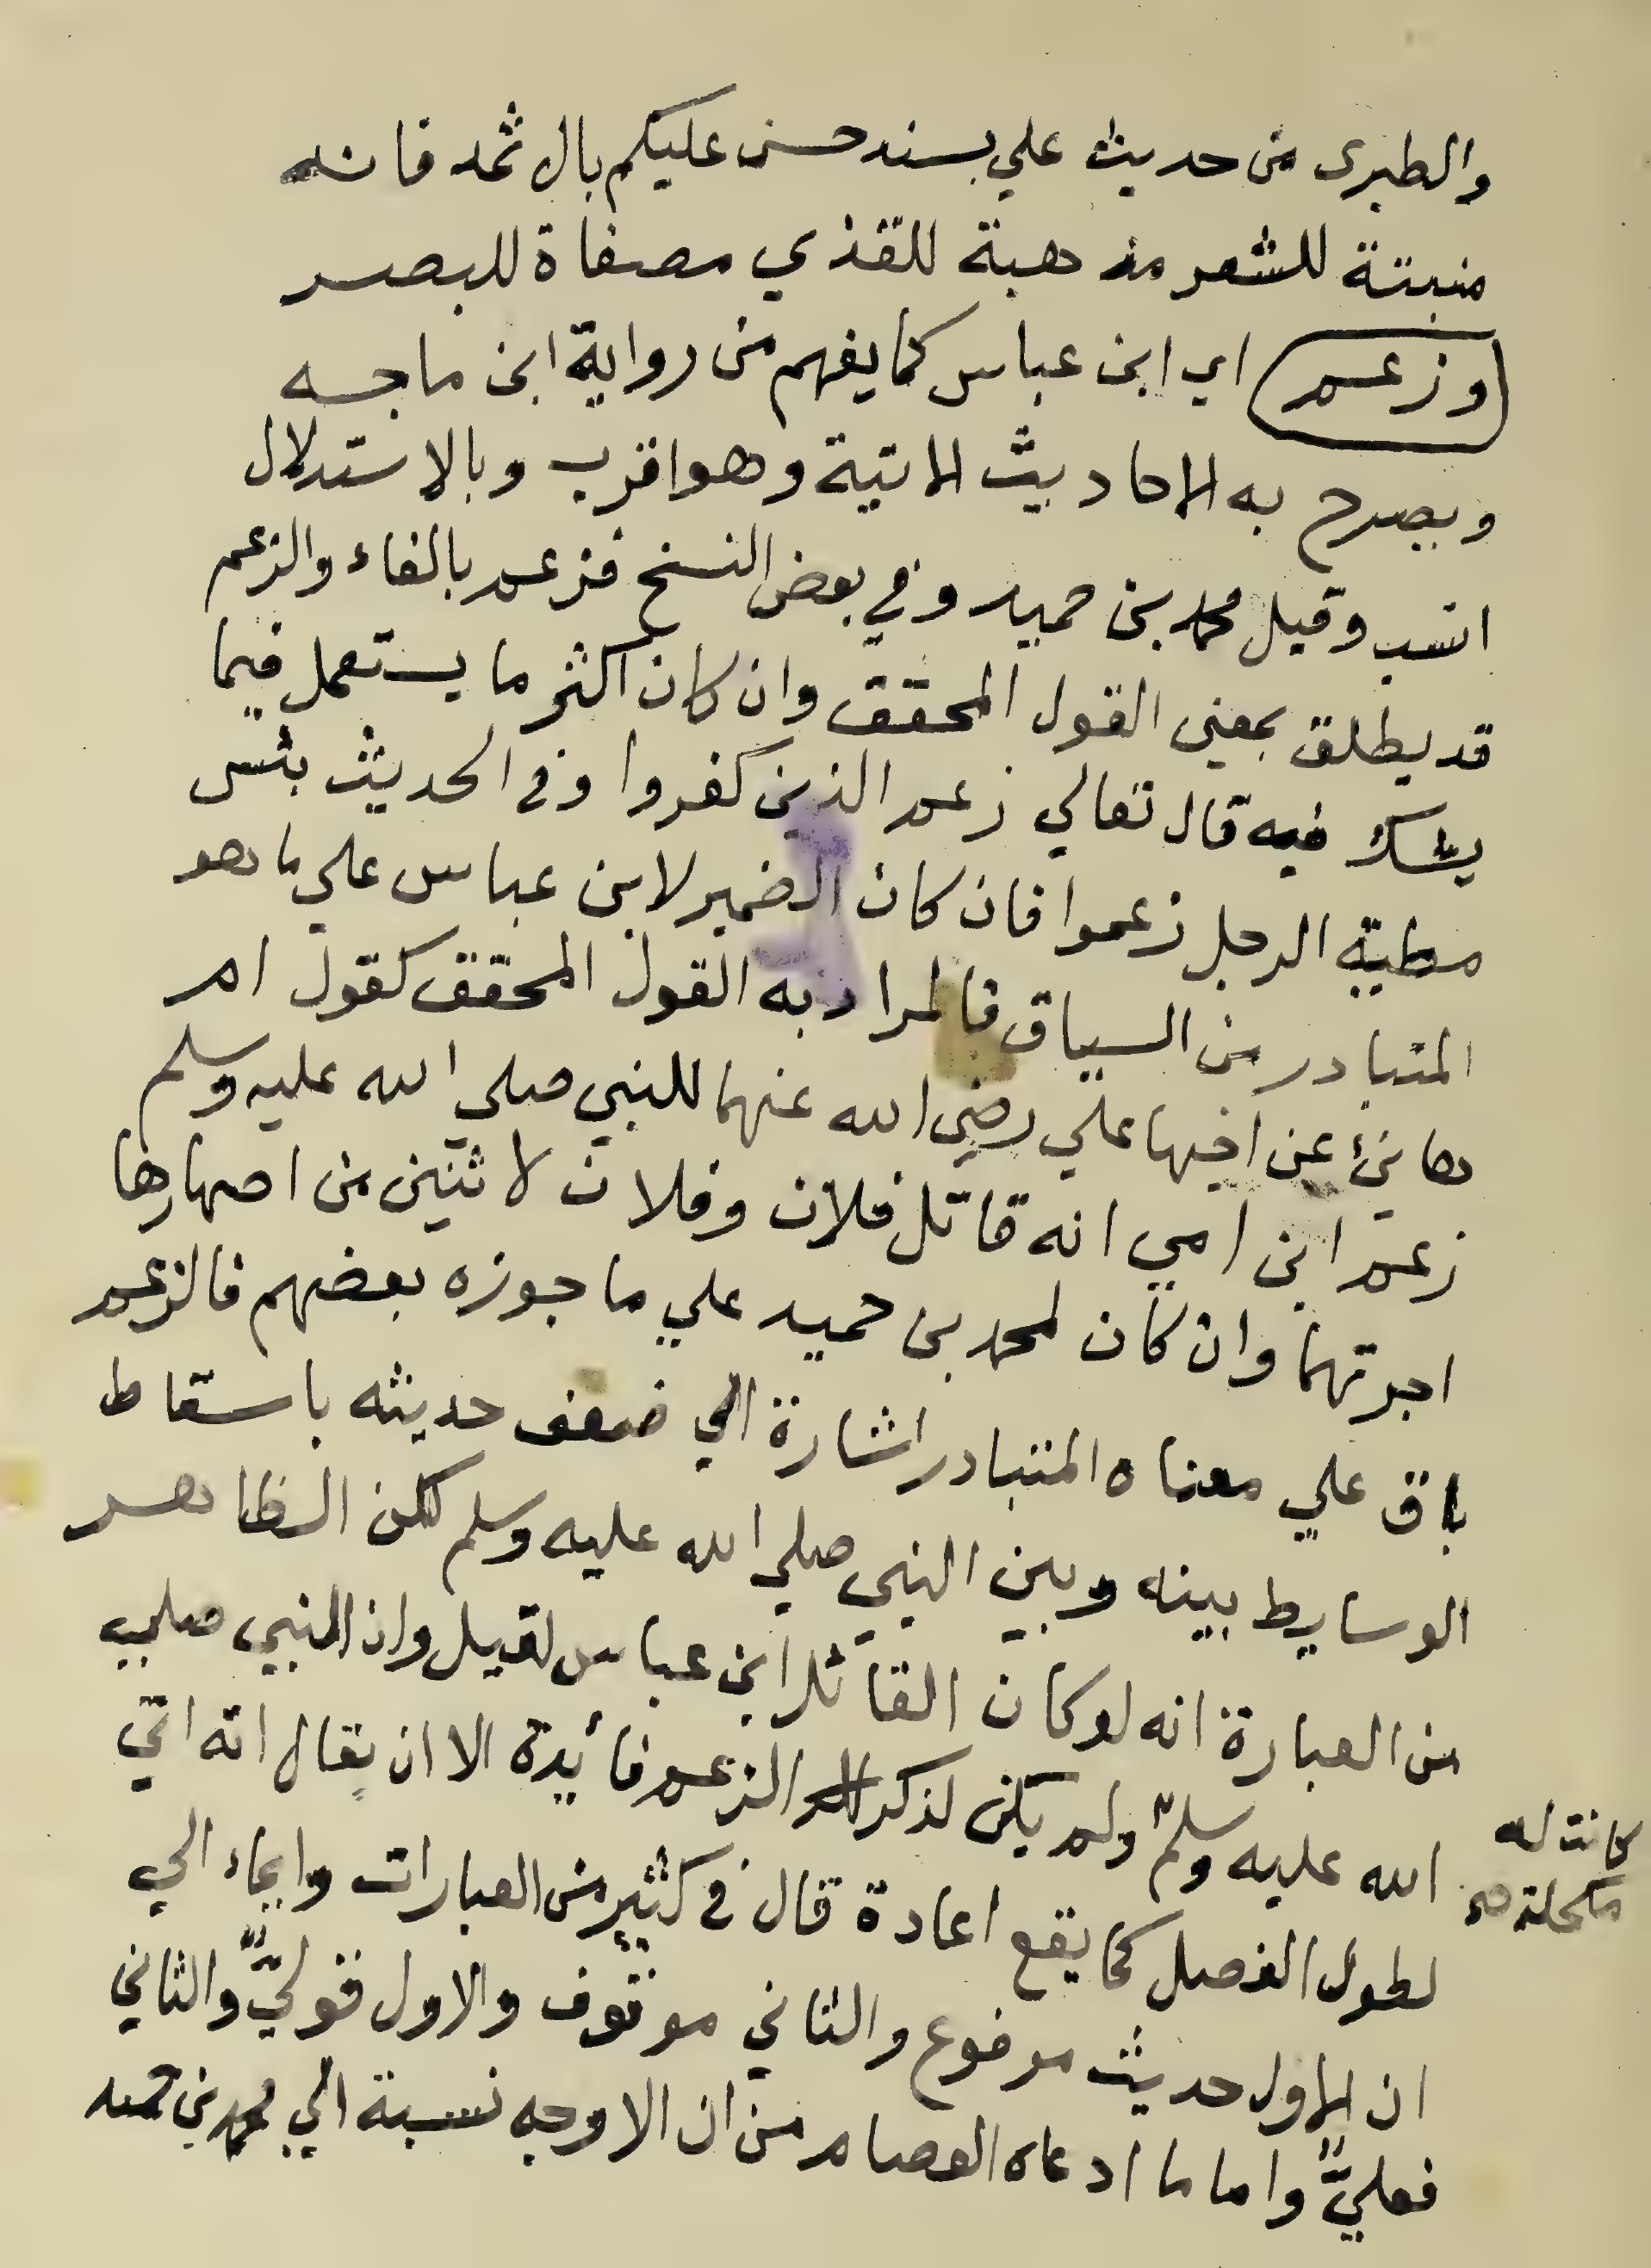 والطبرى من حديث علي بسند حسن عليكم بالاثمد فانه
منبتة للشعر مذهبة للقذي مصفاة للبصر
وزعم اي ابن عباس كما يفهم من رواية ابن ماجه
ويصرح به الاحاديث الاتية وهو اقرب وبالاستدلال
انسب وقيل محمد بن حميد وفي بعض النسخ فزعم بالفاء والزعم
قد يطلق بمعني القول المحقق وان كان اكثر ما يستعمل فيما
يشك فيه قال تعالي زعم الذين كفروا وفى الحديث بئس
مطية الرجل زعموا فان كان الضمير لابن عباس علي ما هو
المتبادر من السياق فالمراد به القول المحقق كقول ام
هانئ عن اخيها علي رضي الله عنهما للنبي صلي الله عليه وسلم
زعم ابن امي انه قاتل فلان وفلان لاثنين من اصهارها
اجرتهما وان كان لمحمد بن حميد علي ما جوزه بعضهم فالزعم
باق علي معناه المتبادر اشارة الي ضعف حديثه باسقاط
الوسايط بينه وبين النبي صلي الله عليه وسلم لكن الظاهر
من العبارة انه لو كان القائل ابن عباس لقيل وان النبي صلي
الله عليه وسلم ولم يكن لذكر الزعم فائدة الا ان يقال انه اتي
كانت له
مكحلة صح
لطول الفصل كما يقع اعادة قال في كثير من العبارات وايماء الي
ان الاول حديث مرفوع والثاني موقوف والاول قوليٌّ والثاني
فعليٌّ واما ما ادعاه العصام من ان الاوجه نسبة الي محمد بن حميد